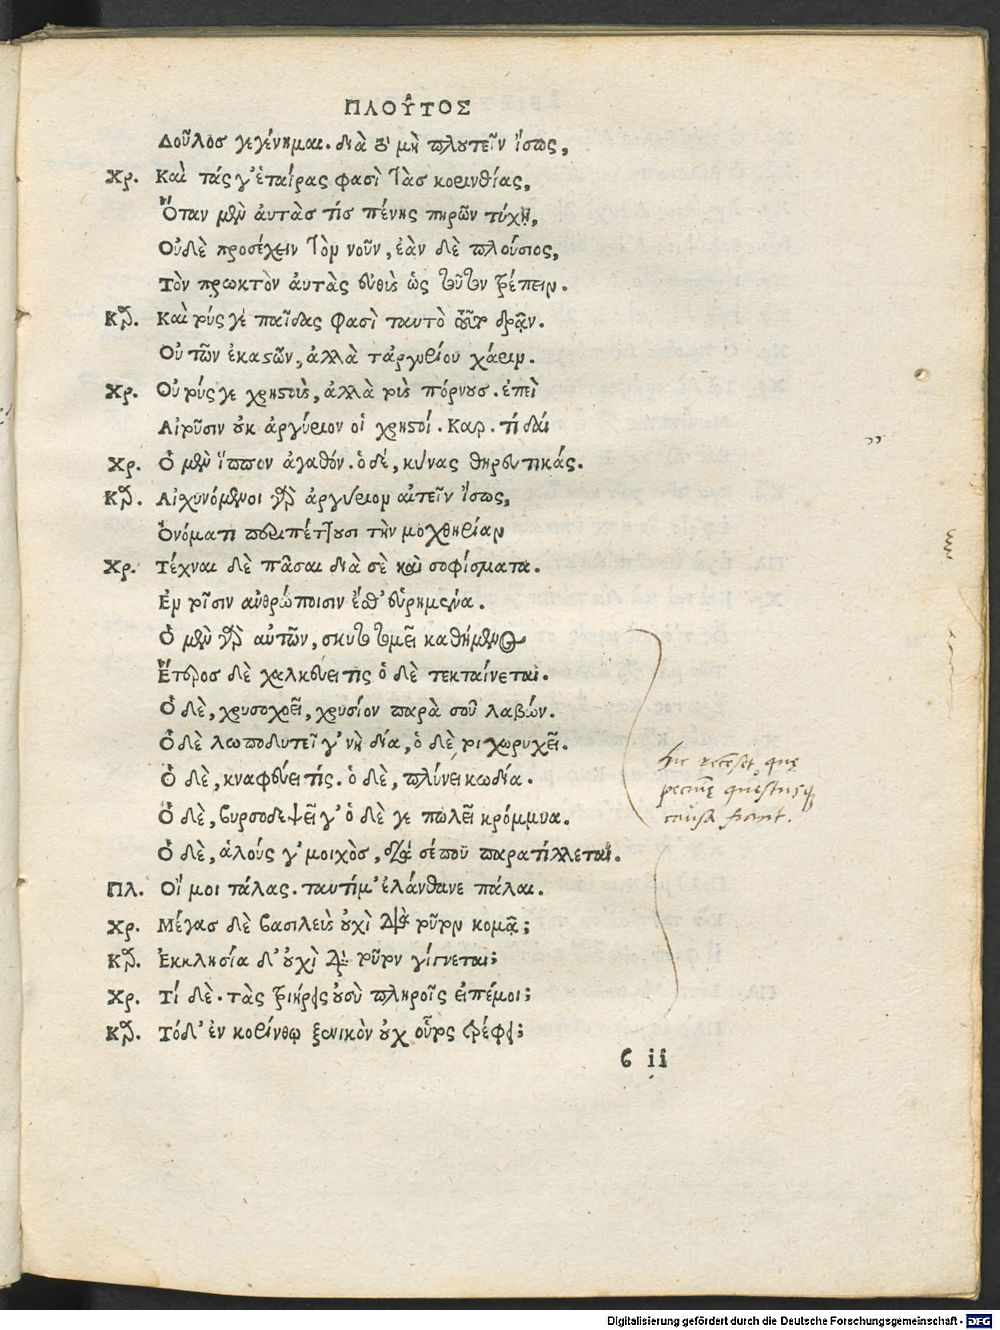 ΠΛΟΥ͂ΤΟΣ
Δοῦλοσ γεγένημαι. διὰ τὸ μὴ πλουτεῖν ἴσως,
Χρ. Καὶ τάς γ' ἑταίρας φασὶ τὰσ κορινθίας,
Ὅταν μὲν ἀυτὰσ τίσ πένης πηρῶν τύχῃ,
Οὐδὲ προσέχειν τὸν νοῦν, ἐὰν δὲ πλούσιος,
Τὸν πρωκτὸν ἀυτὰς ἐυθὺς ὡς τοῦτον τρέπειν.
Κρ. Καὶ τούς γε παῖδας φασὶ ταυτὸ τοῦτο δρᾷν.
Οὐ τῶν ἐραστῶν, ἀλλὰ τἀργυρίου χάριν.
Χρ. Οὐ τούς γε χρηστοὺς, ἀλλὰ τοὺς πόρνουσ. ἐπεὶ
Αἰτοῦσιν οὐκ ἀργύριον οἱ χρηστοί. Καρ. τί δάι
Χρ. Ὁ μὲν ἵππον ἀγαθόν. ὁ δέ, κύνας θηρευτικάς.
Κρ. Αἰχυνόμενοι γὰρ ἀργύριον αἰτεῖν ἴσως,
Ὀνόματι περιπέττουσι τὴν μοχθηρίαν
Χρ. Τέχναι δὲ πᾶσαι διὰ σὲ καὶ σοφίσματα.
Ἐν τοῖσιν ἀνθρώποισιν ἔσθ' ἑυρημένα.
Ὁ μὲν γὰρ αὐτῶν, σκυτοτομεῖ καθήμενος
Ἕτεροσ δὲ χαλκεύει τις ὁ δὲ τεκταίνεται.
Ὁ δὲ, χρυσοχοεῖ, χρυσίον παρὰ σοῦ λαβών.
Ὁ δὲ λωποδυτεῖ γ' νὴ δία, ὁ δὲ τοιχωρυχεῖ.
Ὁ δὲ, κναφεύει τίς. ὁ δὲ, πλύνει κωδία.
Ὁ δὲ, βυρσοδεψεῖ γ' ὁ δὲ γε πωλεῖ κρόμμυα.
Ὁ δὲ, ἁλούς γ' μοιχὸσ, διά σέ που παρατίλλεται.
Πλ. Οἴ μοι τάλας. ταυτίμ' ἐλάνθανε πάλαι.
Χρ. Μέγασ δὲ βασιλεὺς οὐχὶ διὰ τοῦτον κομᾷ;
Κρ. Ἐκκλησία δ' οὐχὶ διὰ τοῦτον γίγνεται;
Χρ. Τί δὲ. τὰς τριήρεις οὐ σὺ πληροῖς ἐιπέμοι;
Κρ. Τόδ' ἐν κορίνθῳ ξενικὸν οὐχ οὗτος τρέφει;
hic recēset quę
pecunię quęstusq;
causa fiunt.
β ii
Digitalisierung gefördert durch die Deutsche Forschungsgemeinschaft - DFG